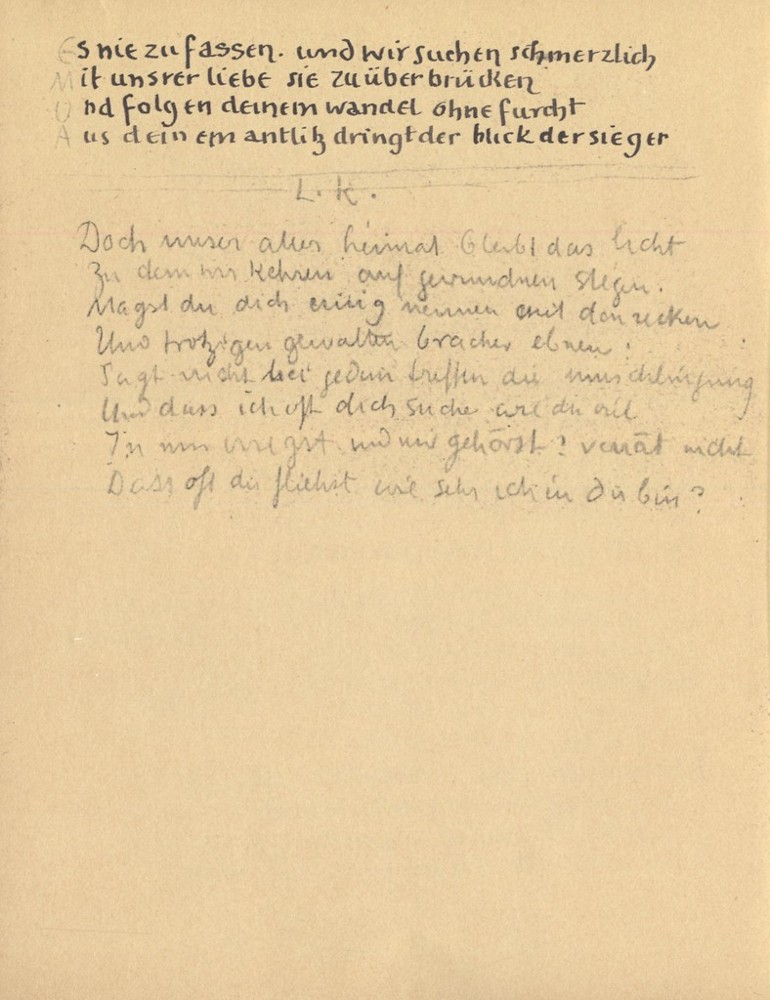 Es nie zu fassen. und wir suchen schmerzlich
Mit unsrer liebe sie zu überbrücken
Und folgen deinem wandel ohne furcht
Aus deinem antlitz dringt der blick der sieger
L. K.
Doch unser aller heimat bleibt das licht
Zu dem wir kehren auf gewundnen stegen.
Magst du dich einig nennen mit den recken
Und trotzigen gewalten bracher ebnen:
Sagt nicht bei jedem treffen die umschlingung
Und dass ich oft dich suche wie du viel
In mir erregst und mir gehörst? verrät nicht
Dass oft du fliehst wie sehr ich in dir bin?